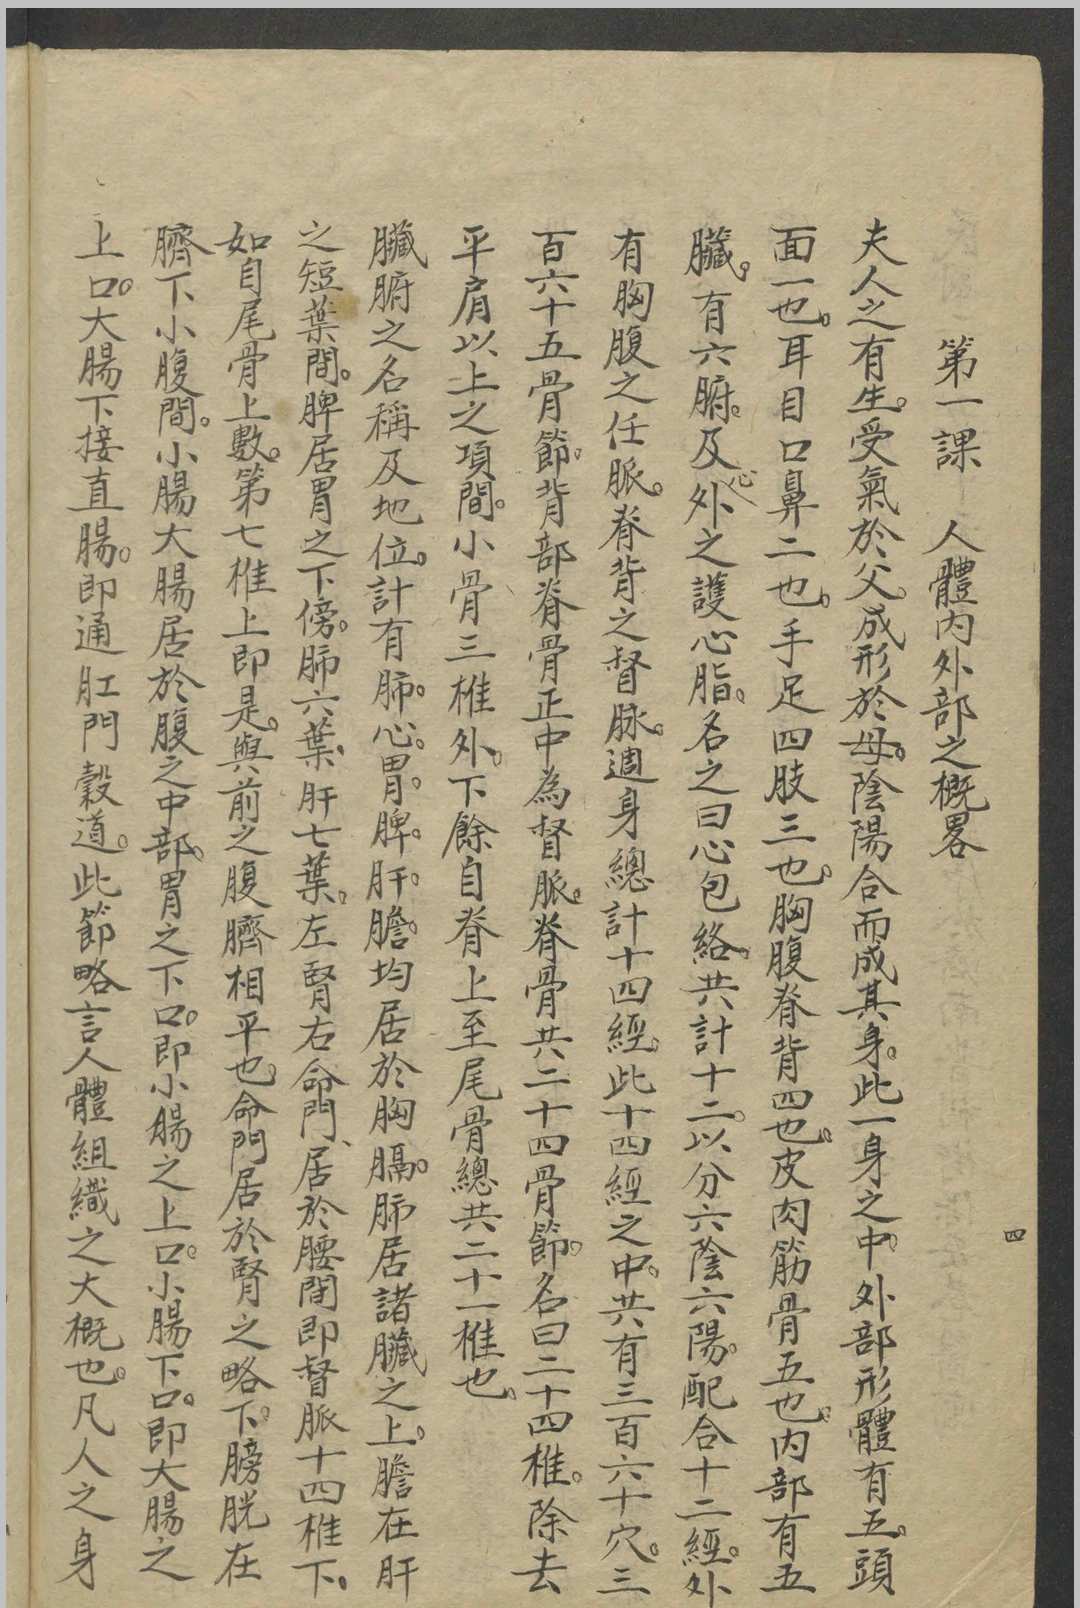 第一課　人體内外部之概畧
夫人之有生。受氣於父。成形於母。陰陽合而成其身。此一身之中。外部形體有五。頭
面一也。耳目口鼻二也。手足四肢三也。胸腹脊背四也。皮肉筋骨五也。内部有五
臟。有六腑。及心外之護心脂。名之曰心包絡。共計十二。以分六陰六陽。配合十二經。外
有胸腹之任脈。脊背之督脉。週身總計十四經。此十四經之中。共有三百六十穴。三
百六十五骨節。背部脊骨正中為督脈。脊骨共二十四骨節。名曰二十四椎。除去
平肩以上之項間。小骨三椎外。下餘自脊上至尾骨總共二十一椎也。
臟腑之名稱及地位。計有肺。心。胃。脾。肝。膽。均居於胸膈。肺居諸臟之上。膽在肝
之短葉間。脾居胃之下傍。肺六葉、肝七葉。左腎右命門、居於腰間即督脈十四椎下。
如自尾骨上數。第七椎上即是。與前之腹臍相平也。命門居於腎之略下。膀胱在
臍下小腹間。小腸大腸居於腹之中部。胃之下口。即小腸之上口。小腸下口。即大腸之
上口。大腸下接直腸。即通肛門穀道。此節略言人體組織之大概也。凡人之身
四